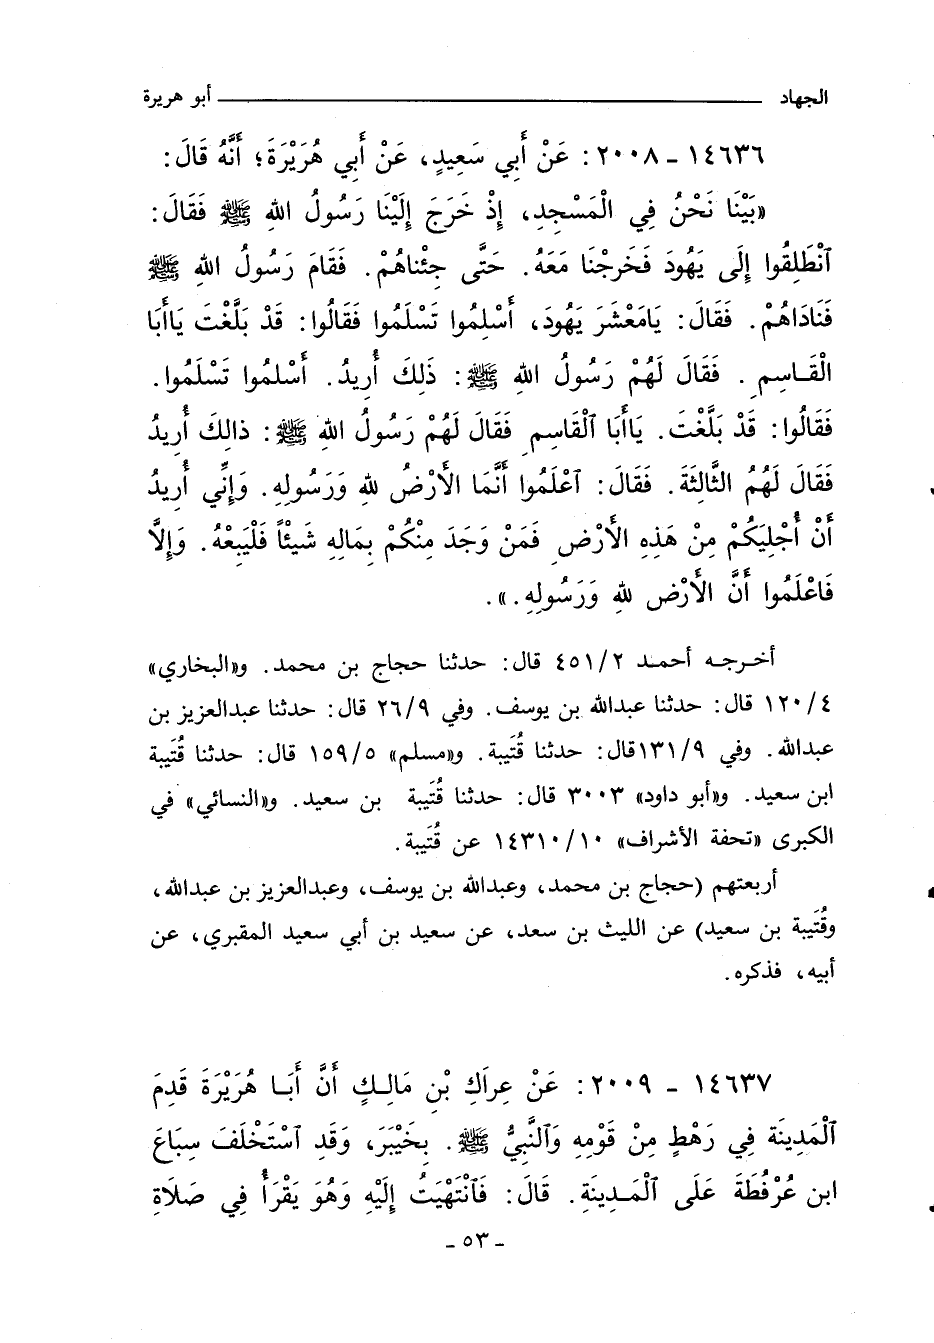 الجهاد أبو هريرة
١٤٦٣٦ - ٢٠٠٨ : عَنْ أَبِي سَعِيدٍ، عَنْ أَبِي هُرَيْرَةَ؛ أَنَّهُ قَالَ:
«بَيْنَا نَحْنُ فِي الْمَسْجِدِ، إِذْ خَرَجَ إِلَيْنَا رَسُولُ اللهِ ﷺ فَقَالَ:
ٱنْطَلِقُوا إِلَى يَهُودَ فَخَرجْنَا مَعَهُ. حَتَّى جِئْناهُمْ. فَقَامَ رَسُولُ اللهِ ﷺ
فَنَادَاهُمْ. فَقَالَ: يَامَعْشَرَ يَهُودَ، أَسْلِمُوا تَسْلَمُوا فَقَالُوا: قَدْ بَلَّغْتَ يَاأَبَا
الْقَاسِمِ. فَقَالَ لَهُمْ رَسُولُ اللهِ ﷺ: ذَلِكَ أُرِيدُ. أَسْلمُوا تَسْلَمُوا.
فَقَالُوا: قَدْ بَلَّغْتَ. يَاأَبَا ٱلْقَاسِمِ فَقَالَ لَهُمْ رَسُولُ اللهِ ﷺ: ذالِكَ أُرِيدُ
فَقَالَ لَهُمُ الثَّالِثَةَ. فَقَالَ: ٱعْلَمُوا أَنَّمَا الأَرْضُ للهِ وَرَسُولِهِ. وَإِنِّي أُرِيدُ
أَنْ أُجْلِيَكُمْ مِنْ هَذِهِ الأَرْضِ فَمَنْ وَجَدَ مِنْكُمْ بِمَالِهِ شَيْئاً فَلْيَبِعْهُ. وَإِلاَّ
فَاعْلَمُوا أَنَّ الأَرْضَ للهِ وَرَسُولِهِ.».
أخرجه أحمد ٤٥١/٢ قال: حدثنا حجاج بن محمد. و«البخاري»
١٢٠/٤ قال: حدثنا عبدالله بن يوسف. وفي ٢٦/٩ قال: حدثنا عبدالعزيز بن
عبدالله. وفي ١٣١/٩قال: حدثنا قُتَيبة. و«مسلم» ١٥٩/٥ قال: حدثنا قُتَيبة
ابن سعيد. و«أبو داود» ٣٠٠٣ قال: حدثنا قُتَيبة بن سعيد. و«النسائي» في
الكبرى «تحفة الأشراف» ١٤٣١٠/١٠ عن قُتَيبة.
أربعتهم (حجاج بن محمد، وعبدالله بن يوسف، وعبدالعزيز بن عبدالله،
وقُتَيبة بن سعيد) عن الليث بن سعد، عن سعيد بن أبي سعيد المقبري، عن
أبيه، فذكره.
١٤٦٣٧ - ٢٠٠٩ : عَنْ عِرَاكِ بْنِ مَالِكٍ أَنَّ أَبَا هُرَيْرَةَ قَدِمَ
ٱلْمَدِينَة فِي رَهْطٍ مِنْ قَوْمِهِ وَٱلنَّبِيُّ ﷺ. بِخَيْبَرَ، وَقَدِ ٱسْتَخْلَفَ سِبَاعَ
ابن عُرْفُطَةَ عَلَى ٱلْمَدِينَةِ. قَالَ: فَٱنْتَهَيْتُ إِلَيْهِ وَهُوَ يَقْرَأُ فِي صَلَاةِ
- ٥٣ -